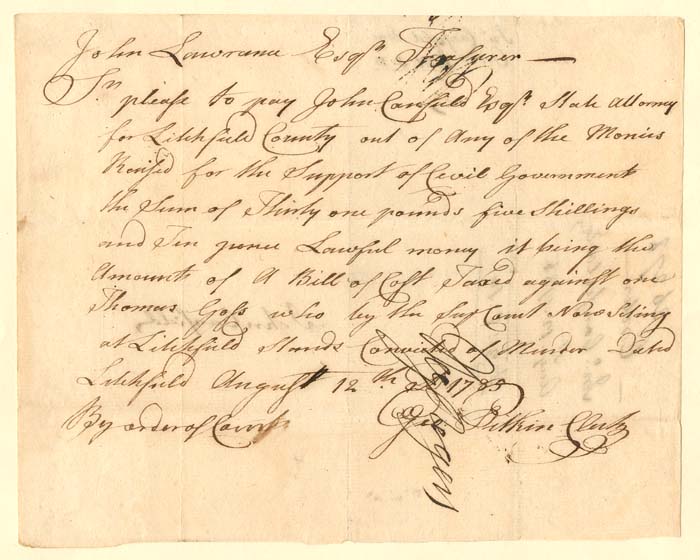 John Lawrance Esqr. Treasurer —
Sr. please to pay John Canfield Esqr. State Attorney
for Litchfield County out of Any of the Monies
Raised for the Support of Civil Government
the Sum of Thirty one pounds five Shillings
and Ten pence Lawful money it being the
Amount of A Bill of Cost Taxed against one
Thomas Goss who by the Sup Court Now Siting
at Litchfield Stands Convicted of Murder Dated
Litchfield August 12th 1785
By order of Court Geo Pitkin Clerk